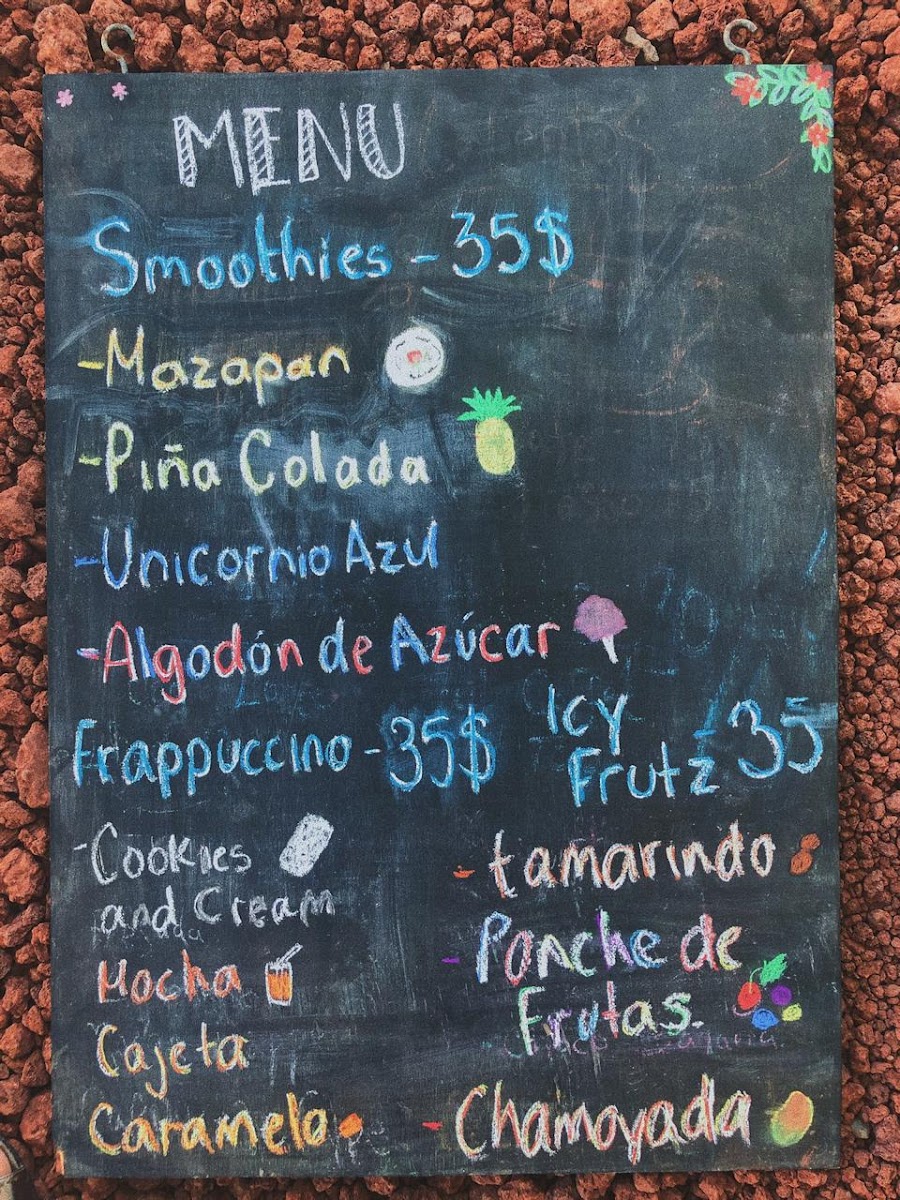 MENU
Smoothies - 35$
- Mazapan
- Piña Colada
- Unicornio Azul
- Algodón de Azúcar
Frappuccino - 35$
- Cookies
and Cream
Mocha
Cajeta
Caramelo
Icy
Frutz - 35
- tamarindo
- Ponche de
Frutas.
- Chamoyada